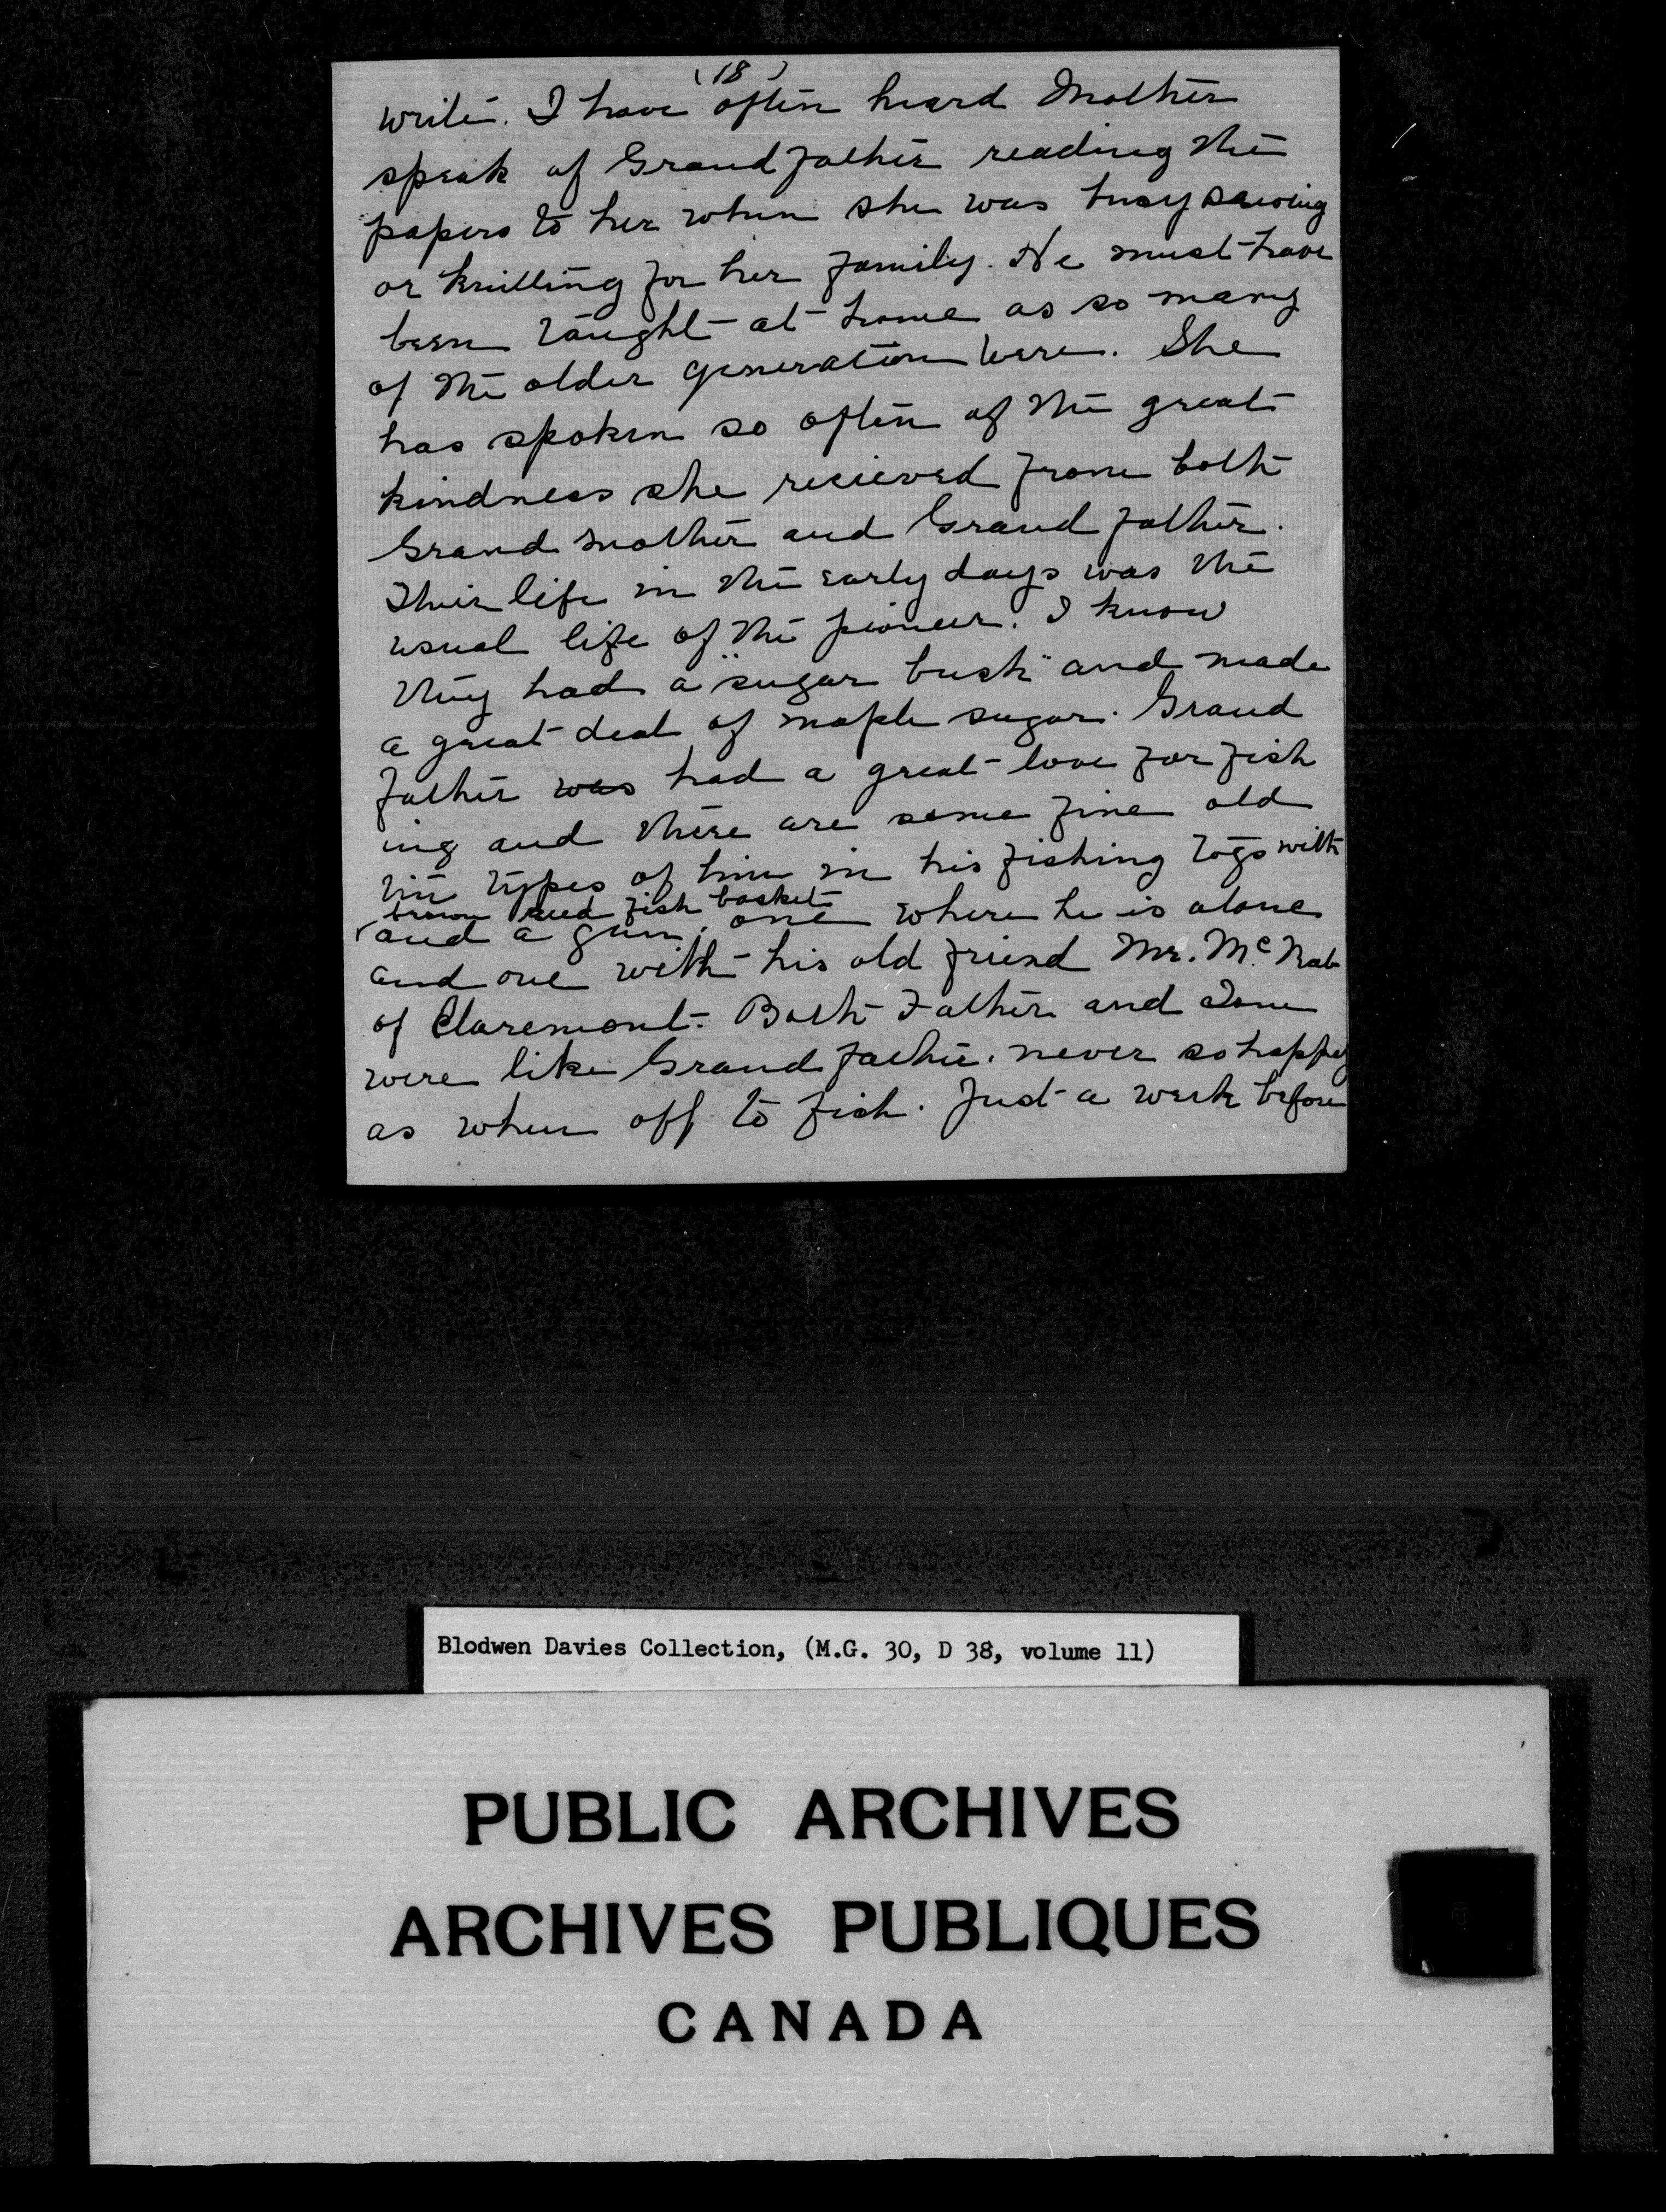 (18)
write. I have often heard Mother
speak of Grandfather reading the
papers to her when she was busy sewing
or knitting for her family. He must have
been taught at home as so many
of the older generation were. She
has spoken so often of the great
kindness she recieved from both
Grand mother and Grand father.
Their life in the early days was the
usual life of the pioneer. I know
they had a "sugar bush" and made
a great deal of maple sugar. Grand
father was had a great love for fish
ing and there are some fine old
tin types of him in his fishing togs with
brown reed fish basket
and a gun, one where he is alone
and one with his old friend Mr. McNab
of Claremont. Both Father and
were like Grand father. never so happy
as when off to fish. Just a week before
Blodwen Davies Collection, (M.G. 30, D 38, volume 11)
PUBLIC ARCHIVES
ARCHIVES PUBLIQUES
CANADA